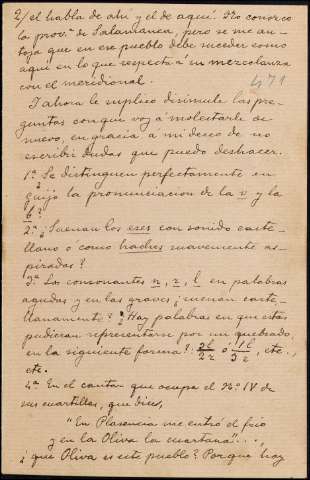 2/ el habla de ahí y el de aquí. No conozco
la prov.ª de Salamanca, pero se me an-
toja que en ese pueblo debe suceder como
aquí en lo que respecta á su mezcolanza
con el meridional.
471
Y ahora le suplico disimule las pre-
guntas con que voy a molestarle de
nuevo, en gracia a mi deseo de no
escribir dudas que puedo deshacer.
1.ª Se distinguen perfectamente en
Guijo la pronunciacion de la v y la
b?
2.ª ¿Suenan los eses con sonido caste-
llano o como haches suavemente as-
piradas?
3.ª Las consonantes n, r, l en palabras
agudas y en las graves ¿suenan caste-
llanamente? ¿Hay palabras en que estas
pudieran representarse por un quebrado,
en la siguiente forma?: 2l/2r ó 1l/3r, etc.,
etc.
4.ª En el cantar que ocupa el N.º IV de
sus cuartillas, que dice,
"En Plasencia me entró el frío
y en la Oliva la cuartana"...,
¿que Oliva es este pueblo? Porque hay